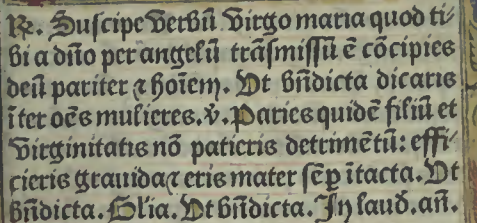 ℟. Suscipe verbū virgo maria quod ti⸗
bi a dn̄o per angelū trāsmissū ē cōcipies
deū pariter ⁊ hoīem. Vt bn̄dicta dicaris
īter oēs mulieres. ℣. Paries quidē filiū et
virginitatis nō patieris detrimētū: effi⸗
cieris grauida⁊ eris mater sēꝑ ītacta. Vt
bn̄dicta. Glia. Vt bn̄dicta. In laud̄. an̄.